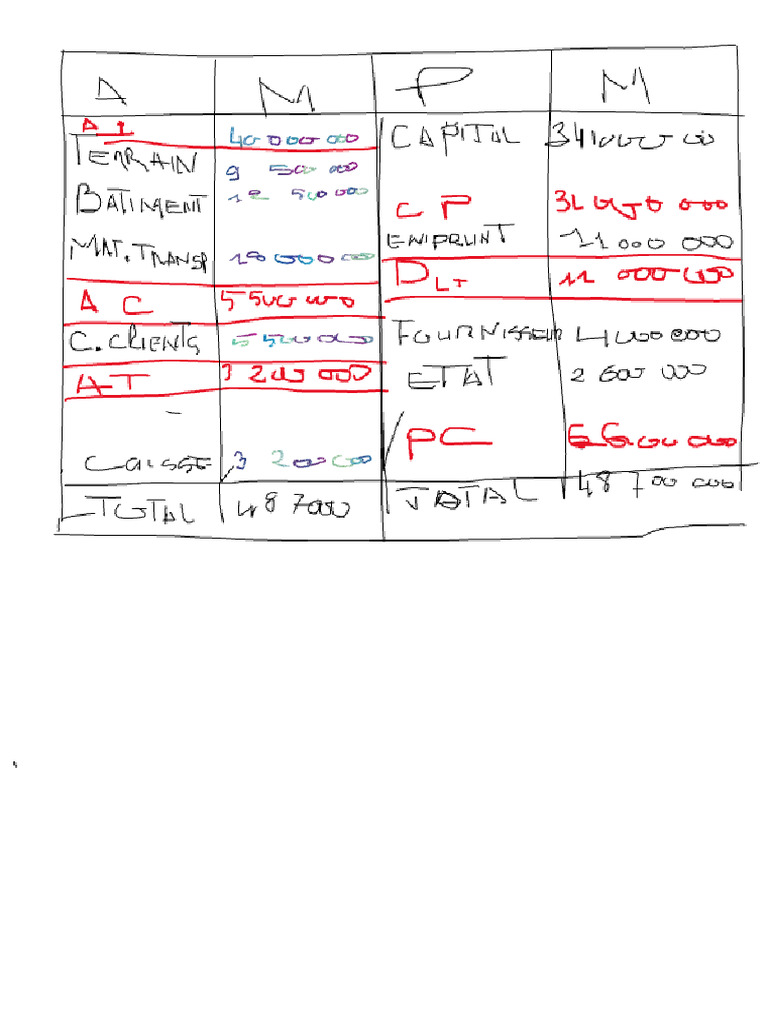 A M P M
A I 40 000 000 CAPITAL
TERRAIN 9 500 000
BÂTIMENT 12 500 000 C P
MAT. TRANSP 18 000 000 EMPRUNT 11 000 000
A C 5 500 000 D LT 11 000 000
C. CLIENTS 5 500 000 FOURNISSEUR 4 000 000
A-T 3 200 000 ETAT 2 600 000
PC
CAISSE 3 200 000
TOTAL 48 7000 TOTAL 48 700 000